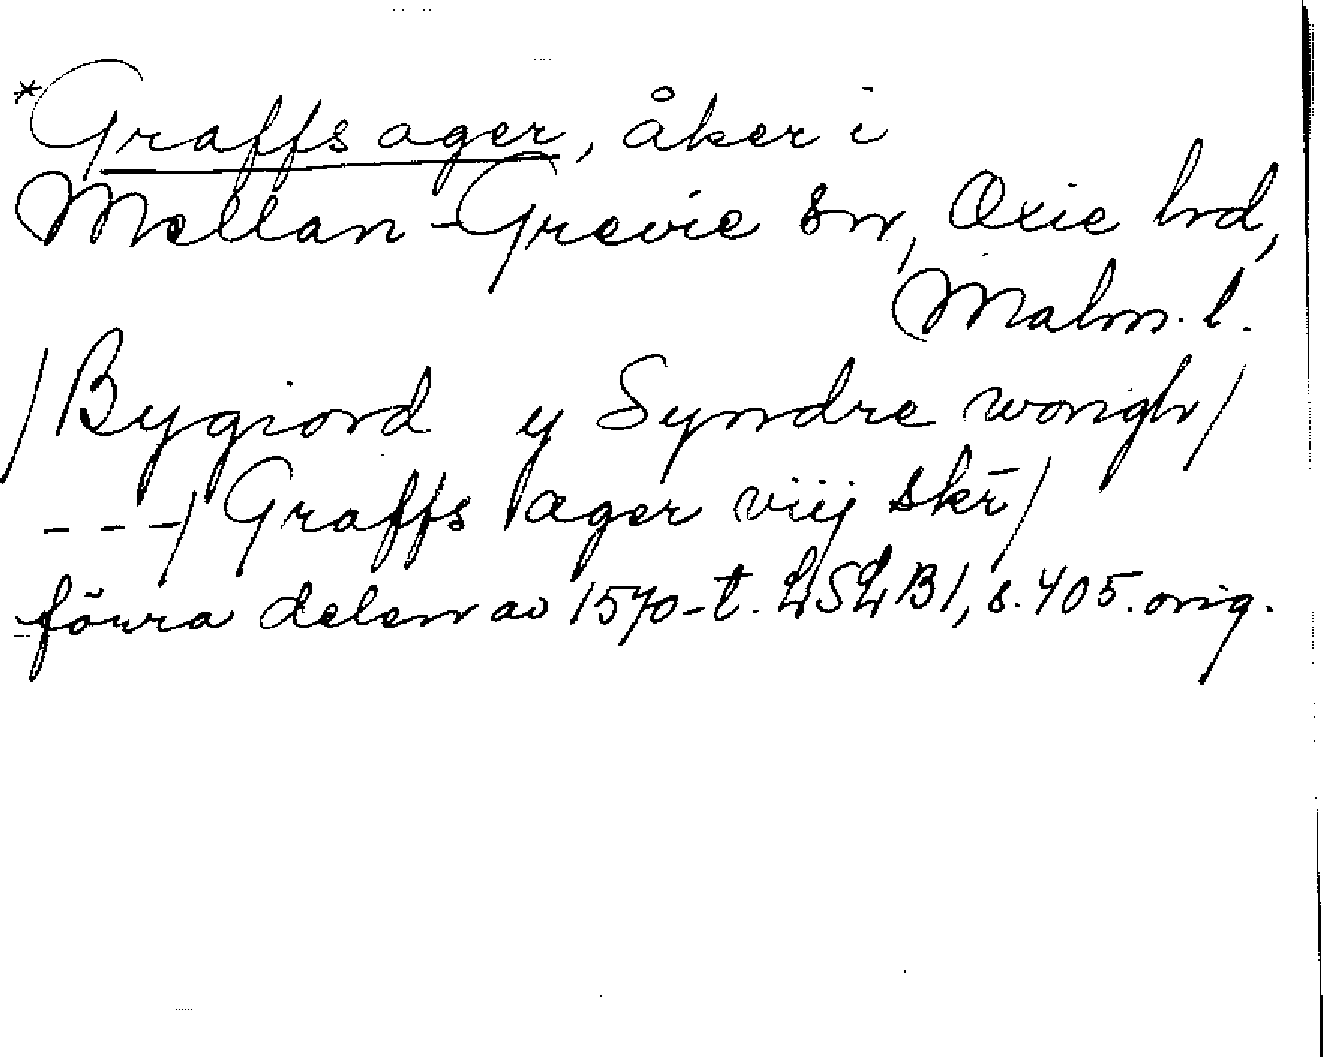 *Graffs ager, åker i
Mellan-Grevie sn, Oxie hd,
Malm. l.
/Bygiord y Syndre wongh/
---/ Graffs ager viij skr̄/
förra delen av 1570-t. LSLB1, s. 405. orig.